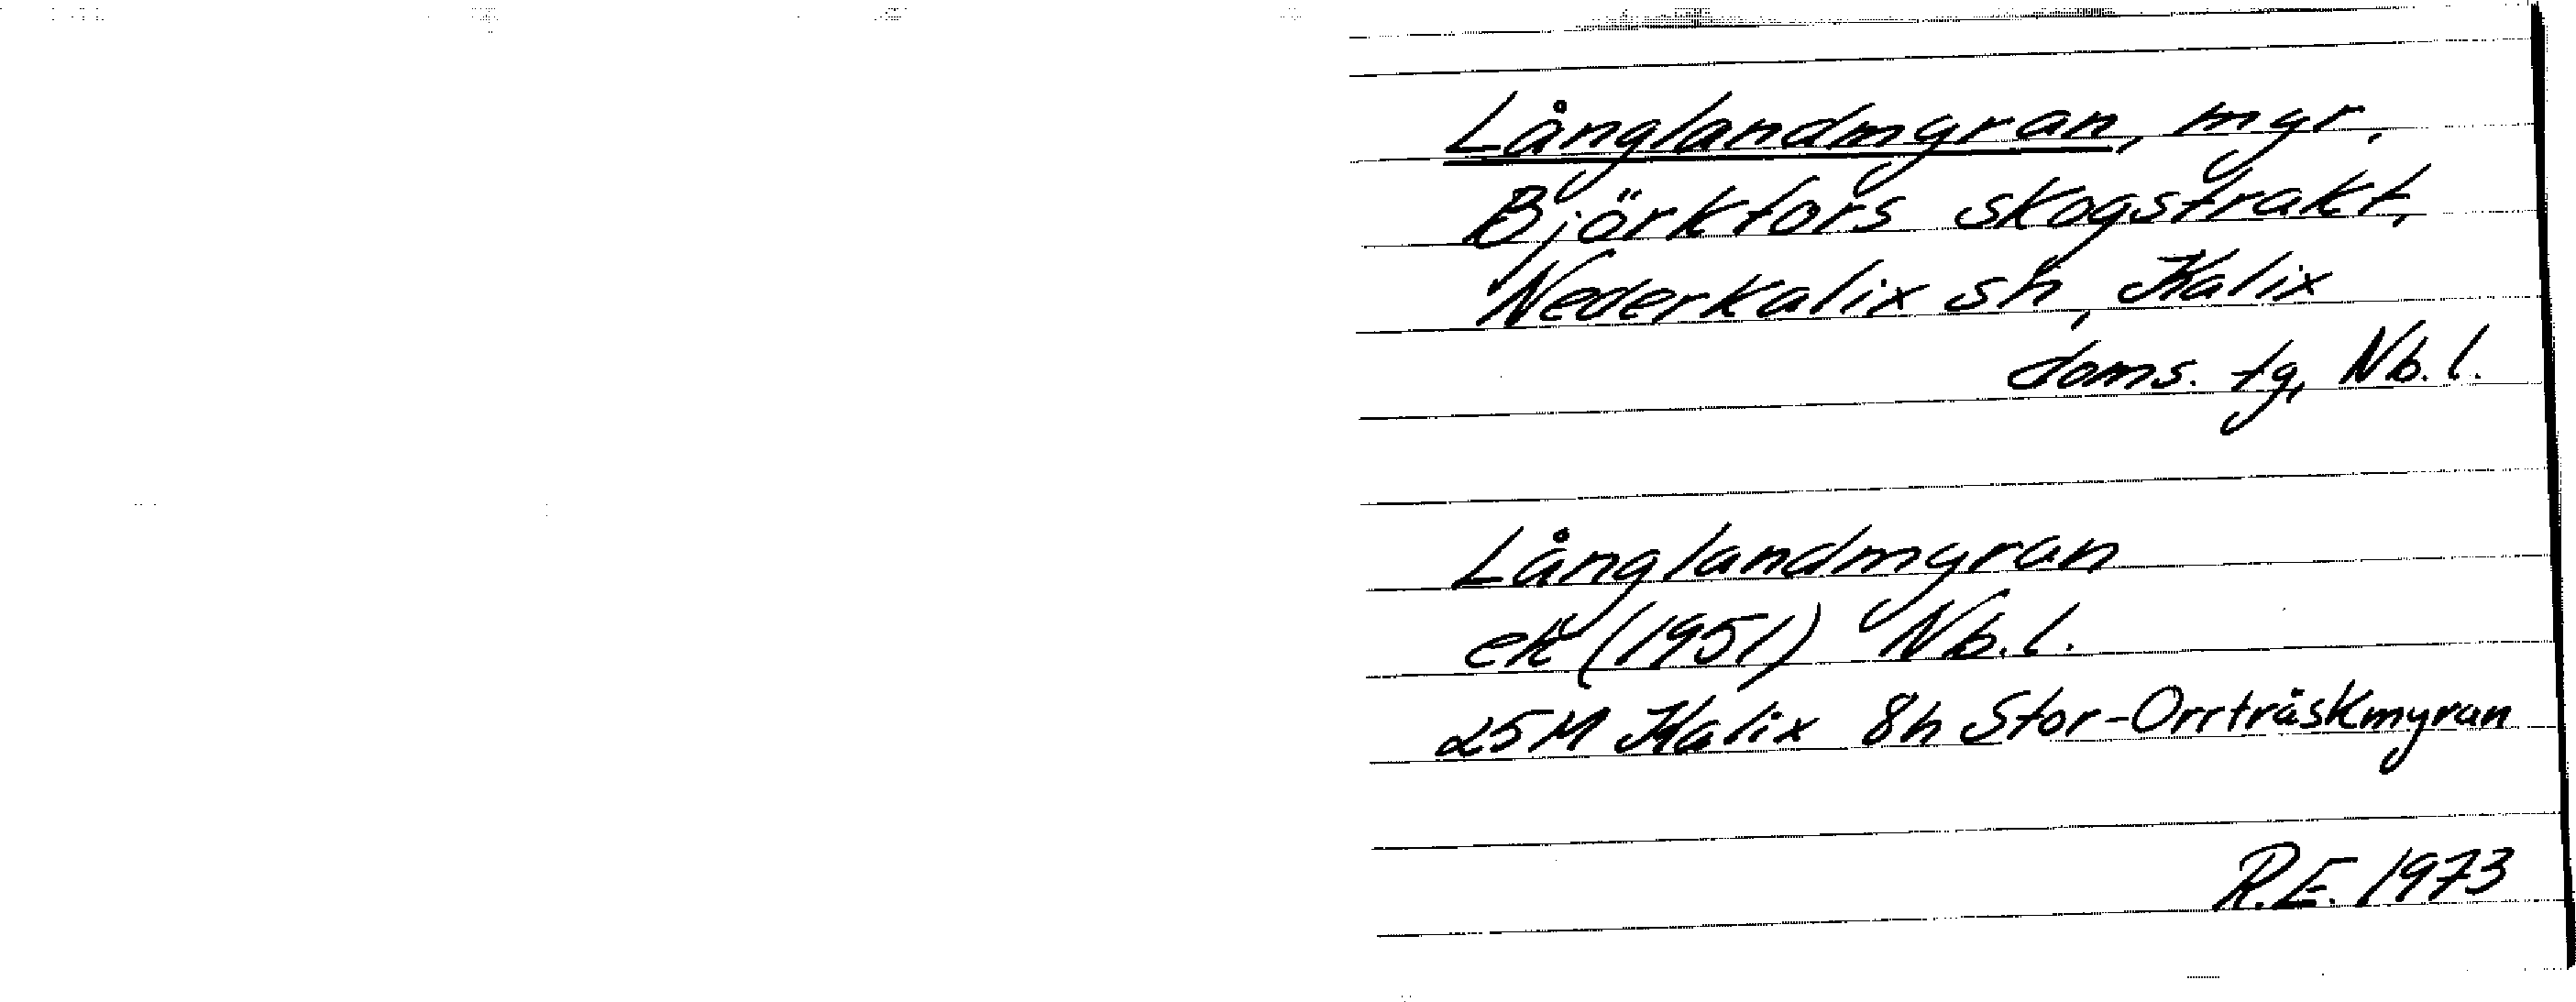 Långlandmyran, myr,
Björkfors skogstrakt,
Nederkalix sn, Kalix
doms. tg, Nb. l.
Långlandmyran
ek (1951) Nb. l.
25M Kalix 8h Stor-Orrträskmyran
R.E. 1973